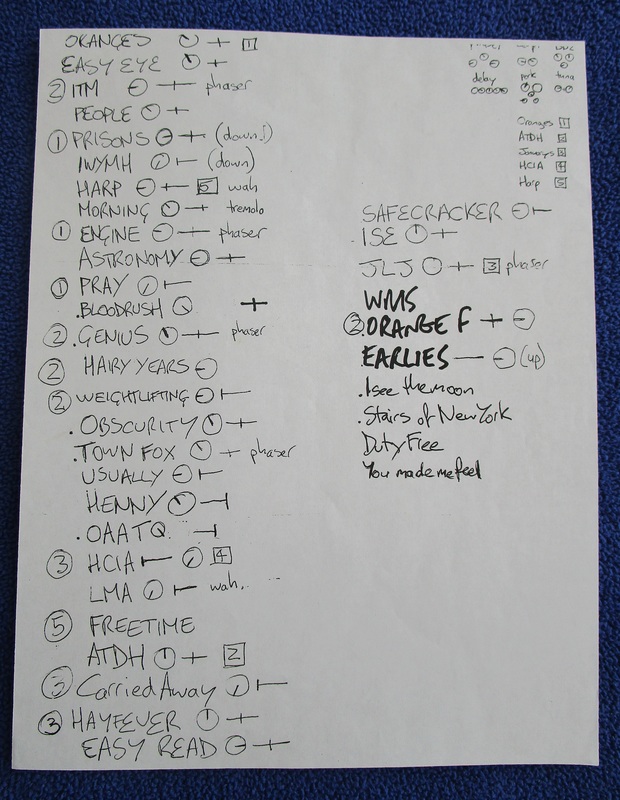 ORANGES 1
EASY EYE
2 ITM phaser
PEOPLE
1 PRISONS (down!)
IWYMH (down)
HARP 5 wah
MORNING tremolo
1 ENGINE phaser
ASTRONOMY
1 PRAY
.BLOODRUSH
2 .GENIUS phaser
2 HAIRY YEARS
2 WEIGHTLIFTING
.OBSCURITY
.TOWN FOX phaser
USUALLY
HENNY
.OAATQ
3 HCIA 4
LMA wah.
5 FREETIME
ATDH 2
3 Carried Away
3 HAYFEVER
EASY READ
delay
Oranges 1
ATDH 2
3
HCIA 4
Harp 5
SAFECRACKER
.ISE
JLJ 3 phaser
WMS
2 .ORANGE F
EARLIES (up)
.I see the moon
.Stairs of New York
Duty Free
You made me feel